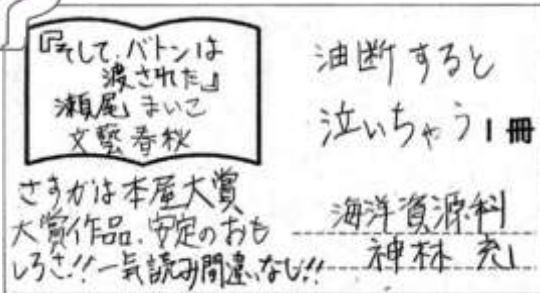 『そして、バトンは
渡された』
瀬尾まいこ
文藝春秋
油断すると
泣いちゃう1冊
さすがは本屋大賞
大賞作品、安定のおも
しろさ!!一気読み間違いなし!!
海洋資源科
神林 充